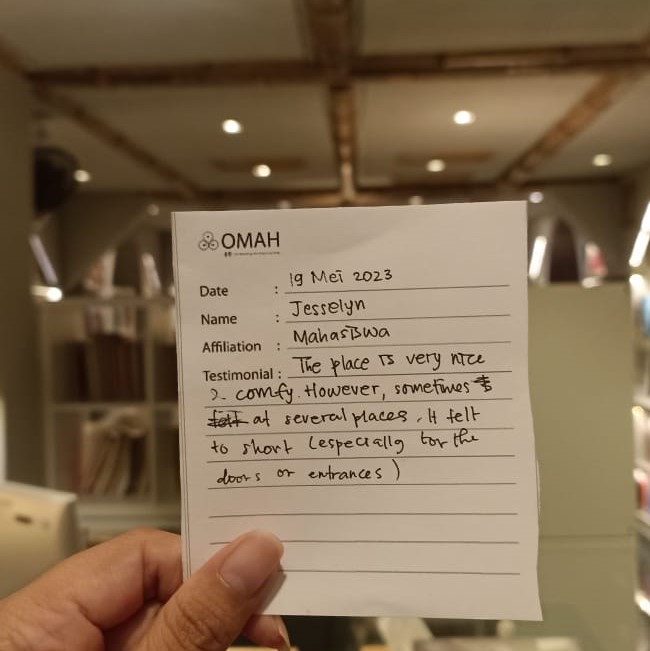 OMAH
Date : 19 Mei 2023
Name : Jesselyn
Affiliation : Mahasiswa
Testimonial : The place is very nice
& comfy. However, sometimes
felt at several places, it felt
to short (especially for the
doors or entrances)